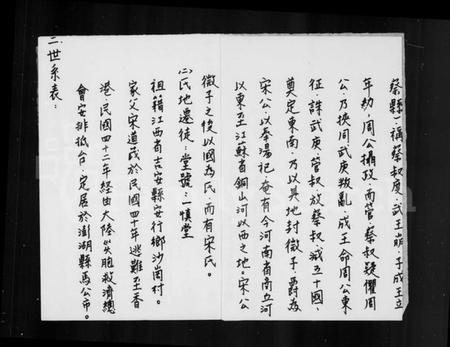 蔡縣)稱蔡叔度。武王崩、子成王立
年幼、周公攝政、而管、蔡叔疑懼周
公、乃挾同武庚叛亂、成王命周公東
征、誅武庚、管叔、放蔡叔、滅五十國、
奠定東南、乃以其地封微子、爵為
宋公以奉湯祀、奄有今河南省商丘河
以東至江蘇省銅山河以西之地。宋公
微子之後以國為氏、而有宋氏。
㈡氏地遷徒：堂號：一慎堂
祖籍江西省吉安縣安行鄉沙崗村。
家父宋道茂於民國四十年逃難至香
港、民國四十二年經由大陸災胞救濟總
會安排抵台、定居於澎湖縣馬公市。
二、世系表：